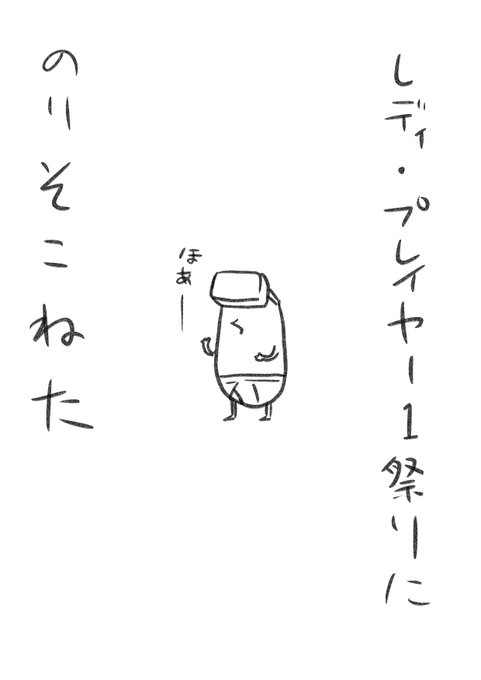 レディ・プレイヤー1祭りに
ほぁー
のりそこねた